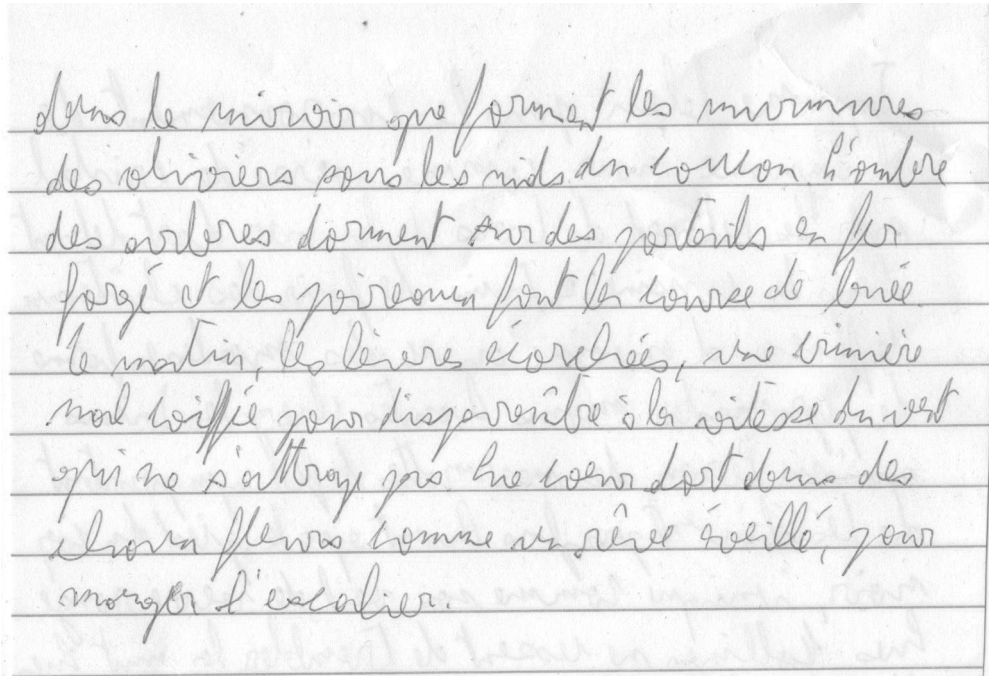 dans le miroir que forment les murmures
des oliviers sous les nids du coucou. L'ombre
des arbres dorment sur des portails en fer
forgé et les poireaux font la course de buée.
le matin, les lèvres écorchées, une crinière
mal coiffée pour disparaître à la vitesse du vent
qui ne s'attrape pas. Le coeur dort dans des
choux fleurs comme un rêve éveillé, pour
manger l'escalier.